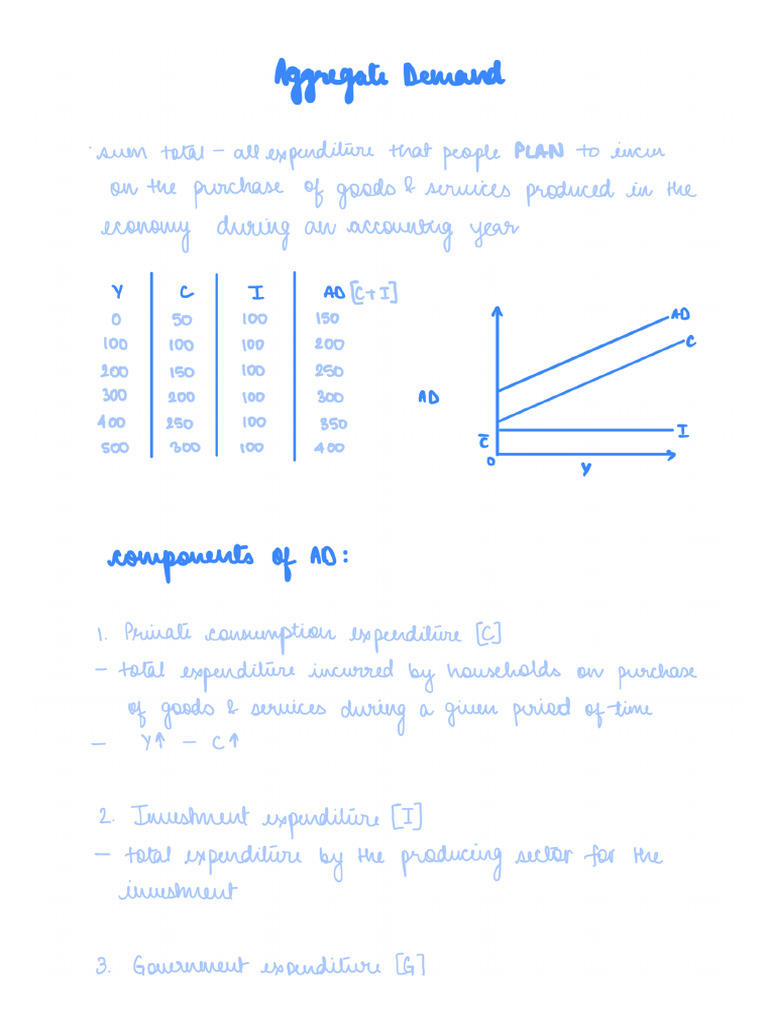 Aggregate Demand
sum total – all expenditure that people PLAN to incur
on the purchase of goods & services produced in the
economy during an accounting year
Y C I AD [C+I]
0 50 100 150
100 100 100 200
200 150 100 250
300 200 100 300
400 250 100 350
500 300 100 400
AD
AD
C
I
C̅
0
Y
components of AD:
1. Private consumption expenditure [C]
– total expenditure incurred by households on purchase
of goods & services during a given period of time
– Y↑ – C↑
2. Investment expenditure [I]
– total expenditure by the producing sector for the
investment
3. Government expenditure [G]